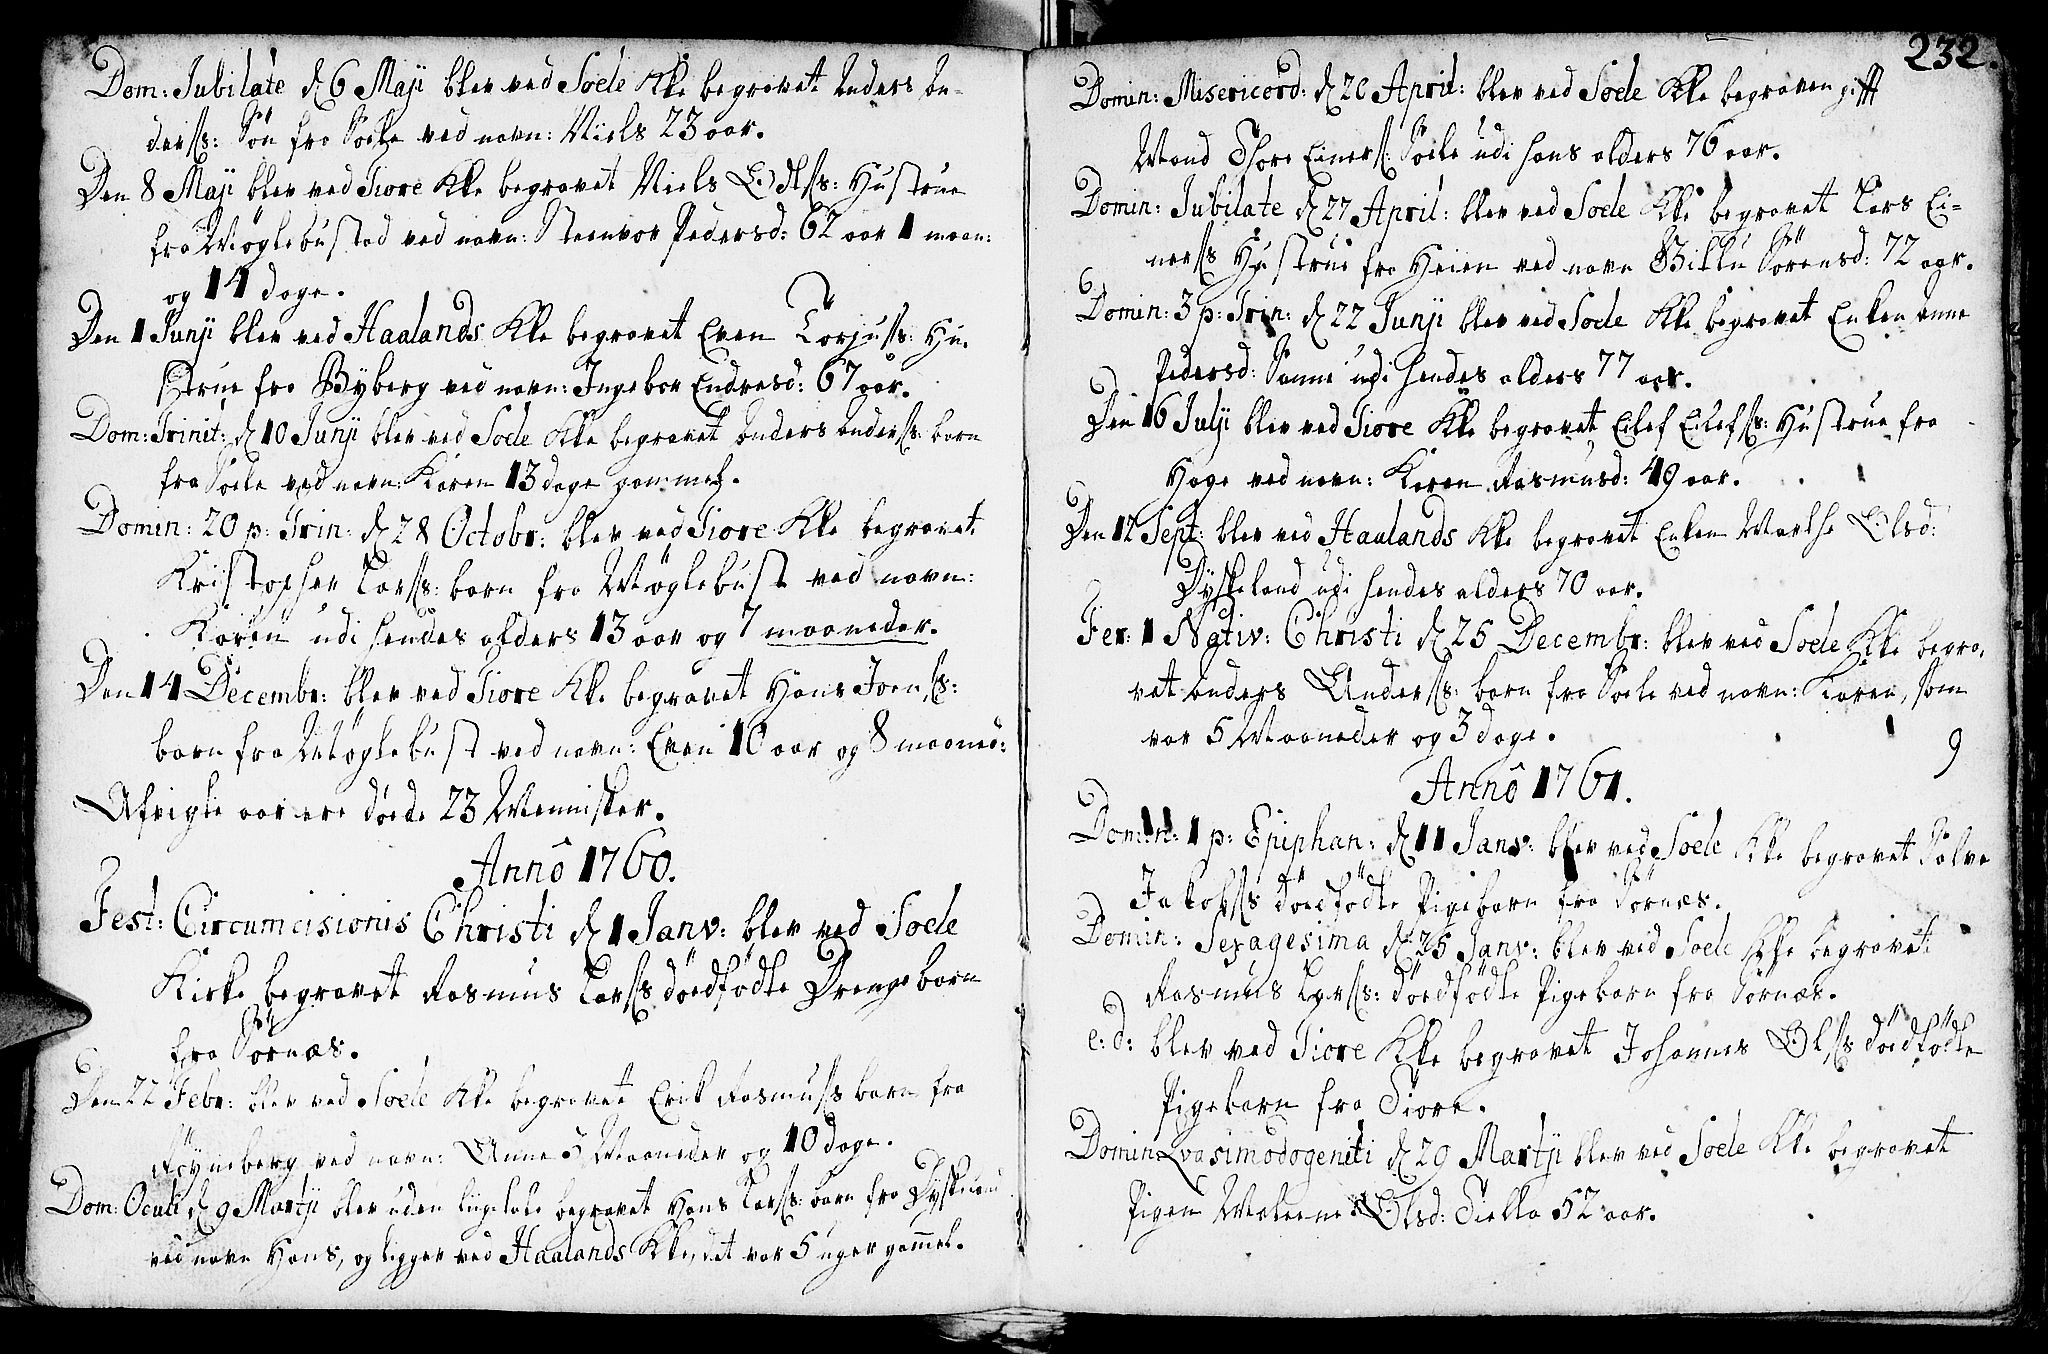 Dom: Jubilate d 6 Maji blev ved Soele Kke begravet Anders An-
ders: Søn fra Soele ved navn: Niels 23 aar.
Den 8 Maji blev ved Tiore Kke begravet Niels Ols: Hustrue
fra Møglebustad ved navn: Steenvor Pedersd: 62 aar 1 maan:
og 14 dage.
Den 1 Junji blev ved Haalands Kke begravet Even Torjuss: Hu-
strue fra Byberg ved navn: Ingebor Endresd: 67 aar.
Dom: Trinit: d 10 Junji blev ved Soele Kke begravet Anders Anders: barn
fra Soele ved navn: Karen 13 dage gammel.
Domin: 20 p: Trin: d 28 Octobr: blev ved Tiore Kke begravet
Kristopher Lars: barn fra Møglebust ved navn:
Karen udi hendes alders 13 aar og 7 maaneder.
Den 14 Decembr: blev ved Tiore Kke begravet Hans Joens:
barn fra Møglebust ved navn: Even 10 aar og 8 maaned:
Afvigte aar ere døede 23 Mennisker.
Anno 1760.
Fest: Circumcisionis Christi d 1 Janv: blev ved Soele
Kirke begravet Rasmus Lars: dødfødte Drengebarn
fra Sørnæs.
Den 22 Febr: blev ved Soele Kke begravet Erik Rasmuss barn fra
Røyneberg ved navn: Anne 5 Maaneder og 10 dage.
Dom: Oculi d 9 Martji blev uden liigtale begravet Hans Lars: barn fra Dyskeland
ved navn Hans, og ligger ved Haalands Kke, det var 5 uger gamel.
232.
Domin: Misericord: d 20 April: blev ved Soele Kke begraven gift
Mand Thore Einers: Soele udi hans alders 76 aar.
Domin: Jubilate d 27 April: blev ved Soele Kke begravet Lars Ei-
ners Hustrue fra Heien ved navn Sørensd: 72 aar.
Domin: 3 p: Trin: d 22 Junji blev ved Soele Kke begravet Enken Anne
Pedersd: Sømme udi hendes alders 77 aar.
Den 16 Julji blev ved Tiore Kke begravet Eilef Eilefs: Hustrue fra
Hage ved navn: Karen Rasmusd: 49 aar.
Den 12 Sept: blev ved Haalands Kke begravet Enken Marthe Olsd:
Dyskeland udi hendes alders 70 aar.
Fer: 1 Nativ: Christi d 25 Decembr: blev ved Soele Kke begra-
vet Anders Anders: barn fra Soele ved navn: Karen, som
var 5 Maaneder og 3 dage.
9
Anno 1761.
Domin: 1 p: Epiphan: d 11 Janv: blev ved Soele Kke begravet Salve
Jakobs dødfødte Pigebarn fra Sørnæs.
Domin: Sexagesima d 25 Janv: blev ved Soele Kke begravet
Rasmus Lars: dødfødte Pigebarn fra Sørnæs.
e: d: blev ved Tiore Kke begravet Johannes Ols dødfødte
Pigebarn fra Tiore.
Domin: Qvasimodogeniti d 29 Martji blev ved Soele Kke begravet
Pigen Malene Olsd: Tielta 52 aar.